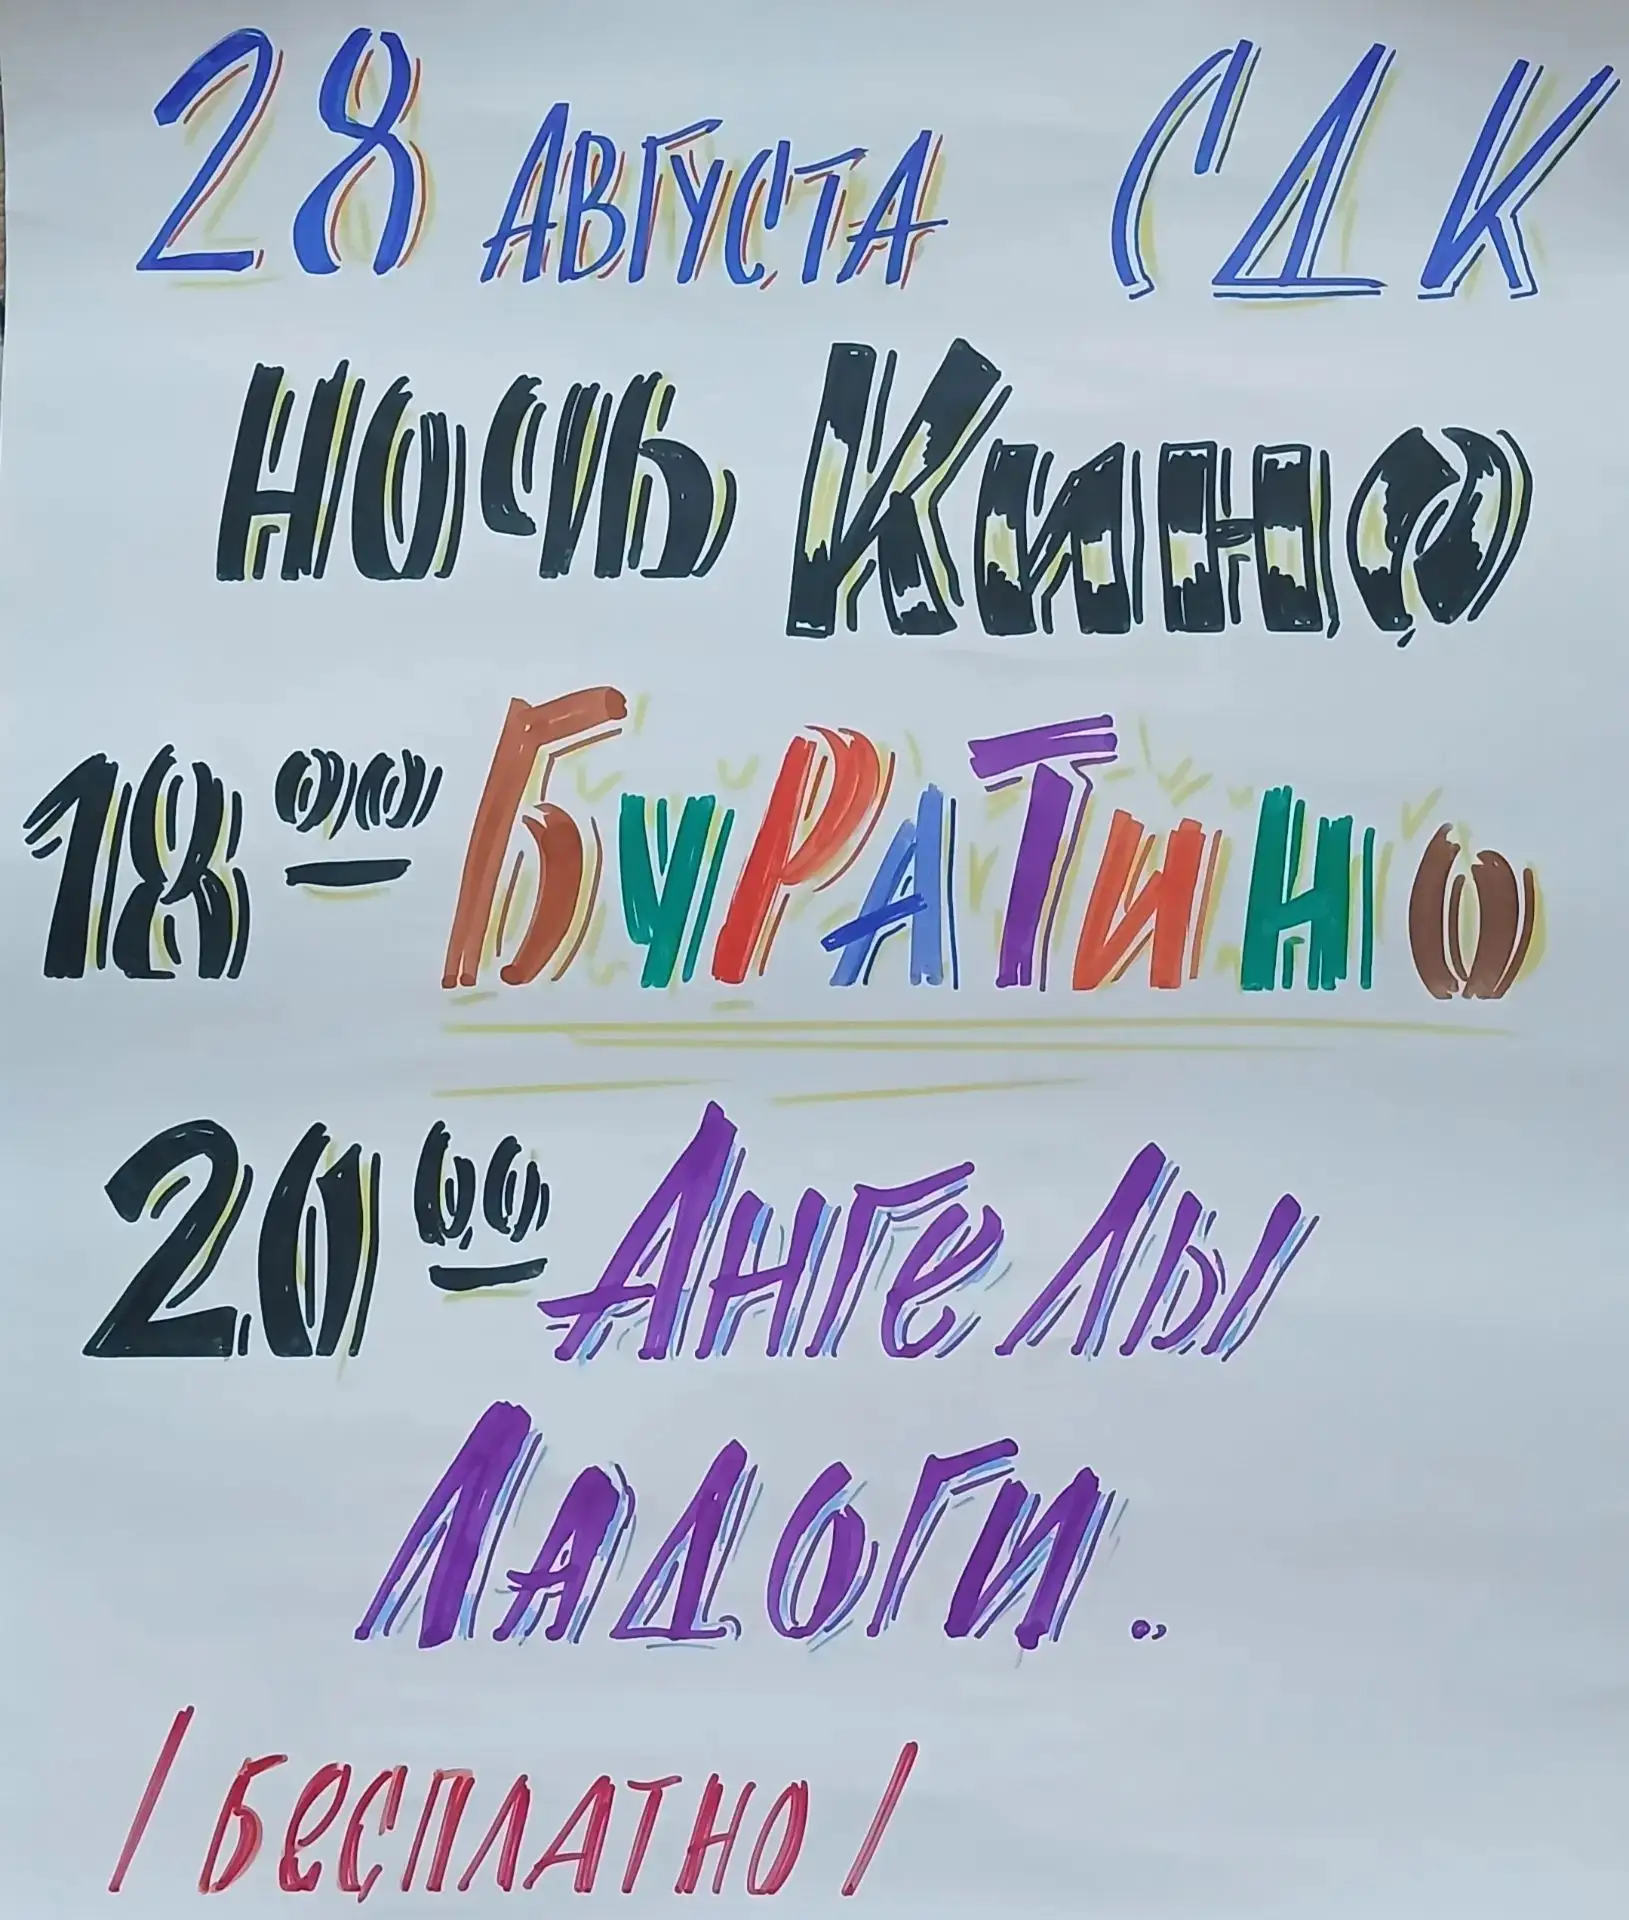 28 АВГУСТА СДК
НОЧЬ КИНО
18 00 БУРАТИНО
20 00 АНГЕЛЫ
ЛАДОГИ..
/БЕСПЛАТНО/